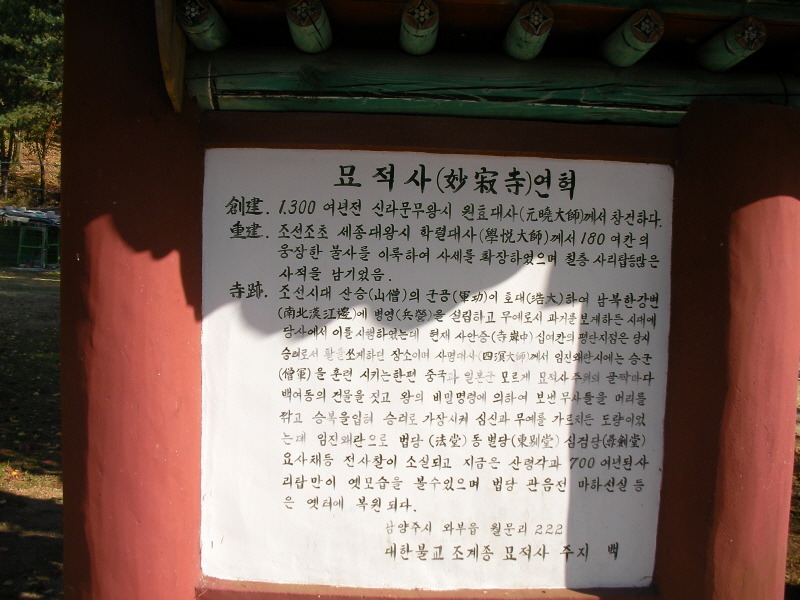 묘적사(妙寂寺)연혁
創建. 1.300 여년전 신라문무왕시 원효대사(元曉大師)께서 창건하다.
重建. 조선조초 세종대왕시 학렬대사(學悅大師)께서 180 여칸의
웅장한 불사를 이룩하여 사세를 확장하였으며 칠층 사리탑등많은
사적을 남기었음.
寺跡. 조선시대 산승(山僧)의 군공(軍功)이 호대(浩大)하여 남북한강변
(南北漢江邊)에 병영(兵營)을 설립하고 무예로서 과거를 보게하든 시대에
당사에서 이를 시행하였는데 현재 사안중(寺 中) 십여칸의 평단지점은 당시
승려로서 활을쏘게하던 장소이며 사명대사(四溟大師)께서 임진왜란시에는 승군
(僧軍)을 훈련 시키는한편 중국과 일본군 모르게 묘적사 주위의 골짝마다
백여동의 건물을 짓고 왕의 비밀명령에 의하여 보낸무사들을 머리를
깎고 승복을입혀 승려로 가장시켜 심신과 무예를 가르치든 도량이었
는데 임진왜란으로 법당 (法堂) 동별당(東別堂) 심검당(尋劍堂)
요사채등 전사찰이 소실되고 지금은 산령각과 700 여년된사
리탑만이 옛모습을 볼수있으며 법당 관음전 마하선실 등
은 옛터에 복원 되다.
남양주시 와부읍 월문리 222
대한불교 조계종 묘적사 주지 백